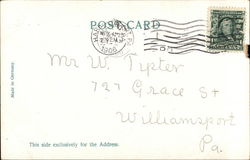 POST CARD
1906
Mr W. Tipter
727 Grace St
Williamsport
Pa.
Made in Germany
This side exclusively for the Address.